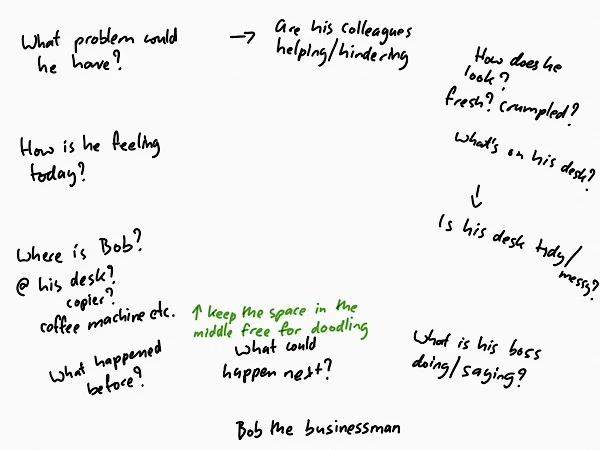 What problem could
he have?
→ Are his colleagues
helping/hindering
How does he
look?
fresh? crumpled?
What's on his desk?
↓
Is his desk tidy/
messy?
How is he feeling
today?
Where is Bob?
@ his desk?
copier?
coffee machine etc.
↑ keep the space in the
middle free for doodling
What happened
before?
What could
happen next?
What is his boss
doing/saying?
Bob the businessman